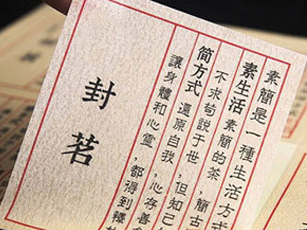 素簡是一種生活方式
素生活 素簡的茶，簡古
不求苟說于世，但知己
简方式 還原自我，心存善
讓身體和心靈，都得到釋
封茗